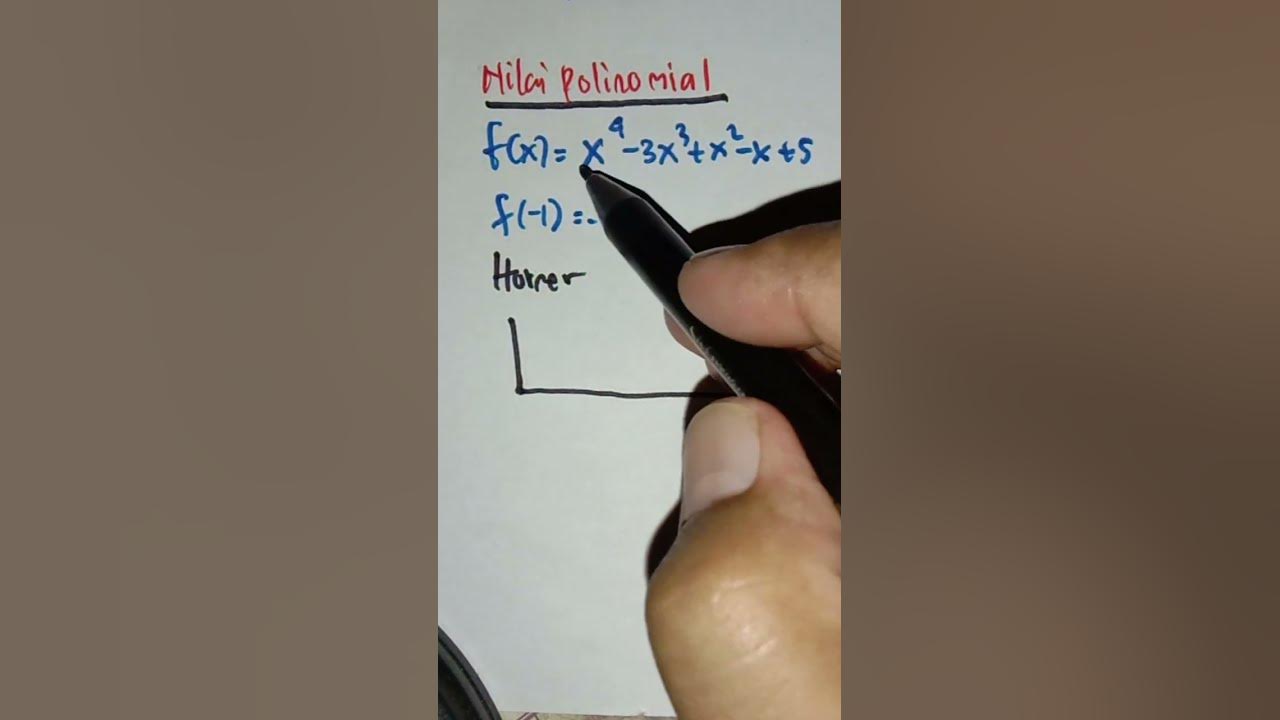 Nilai polinomial
f(x) = x⁴ - 3x³ + x² - x + 5
f(-1) = ..
Horner